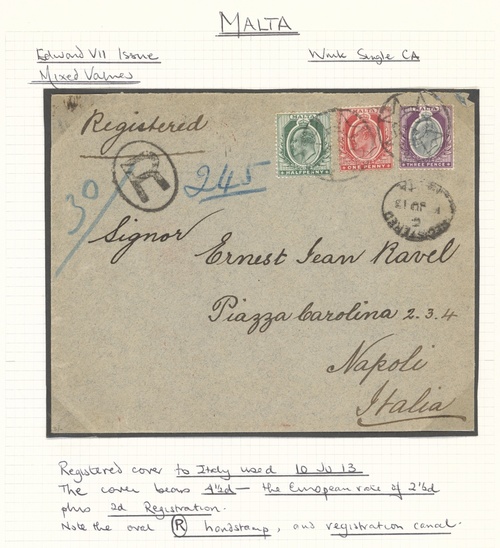 MALTA
Edward VII Issue
Wmk Single CA
Mixed Values
Registered
R
30
245
MALTA
HALFPENNY
MALTA
ONE PENNY
MALTA
THREE PENCE
REGISTERED
JU 13
Signor
Ernest Jean Ravel
Piazza Carolina 2.3.4
Napoli
Italia
Registered cover to Italy used 10 JU 13
The cover bears 4½d — the European rate of 2½d
plus 2d Registration.
Note the oval R handstamp, and registration cancel.